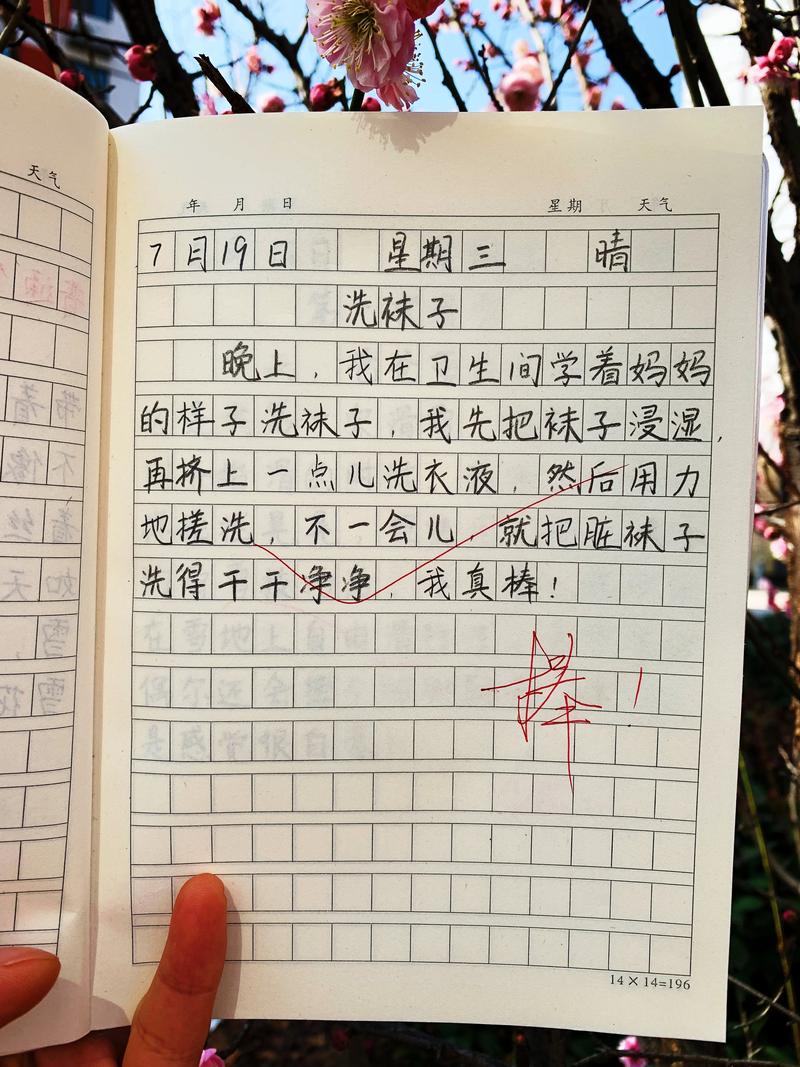 天气
年 月 日 星期 天气
7月19日 星期三 晴
洗袜子
晚上，我在卫生间学着妈妈
的样子洗袜子，我先把袜子浸湿，
再挤上一点儿洗衣液，然后用力
地搓洗，不一会儿，就把脏袜子
洗得干干净净，我真棒！
棒！
14×14=196